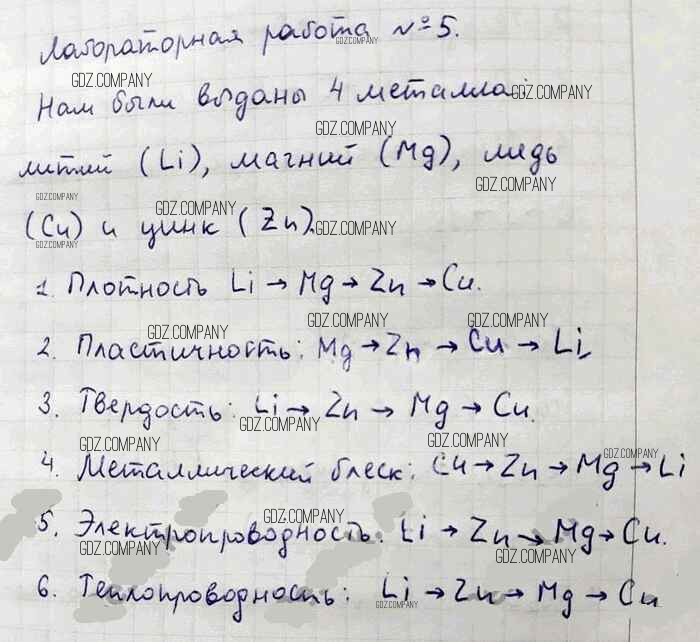 Лабораторная работа №5.
GDZ.COMPANY
GDZ.COMPANY
Нам были выданы 4 металла:
GDZ.COMPANY
GDZ.COMPANY
литий (Li), магний (Mg), медь
GDZ.COMPANY
GDZ.COMPANY
GDZ.COMPANY
(Cu) и цинк (Zn).
GDZ.COMPANY
GDZ.COMPANY
1. Плотность Li → Mg → Zn → Cu.
GDZ.COMPANY
GDZ.COMPANY
GDZ.COMPANY
2. Пластичность: Mg → Zn → Cu → Li
3. Твердость: Li → Zn → Mg → Cu.
GDZ.COMPANY
GDZ.COMPANY
GDZ.COMPANY
GDZ.COMPANY
4. Металлический блеск: Cu → Zn → Mg → Li
GDZ.COMPANY
5. Электропроводность: Li → Zn → Mg → Cu.
GDZ.COMPANY
GDZ.COMPANY
6. Теплопроводность: Li → Zn → Mg → Cu
GDZ.COMPANY